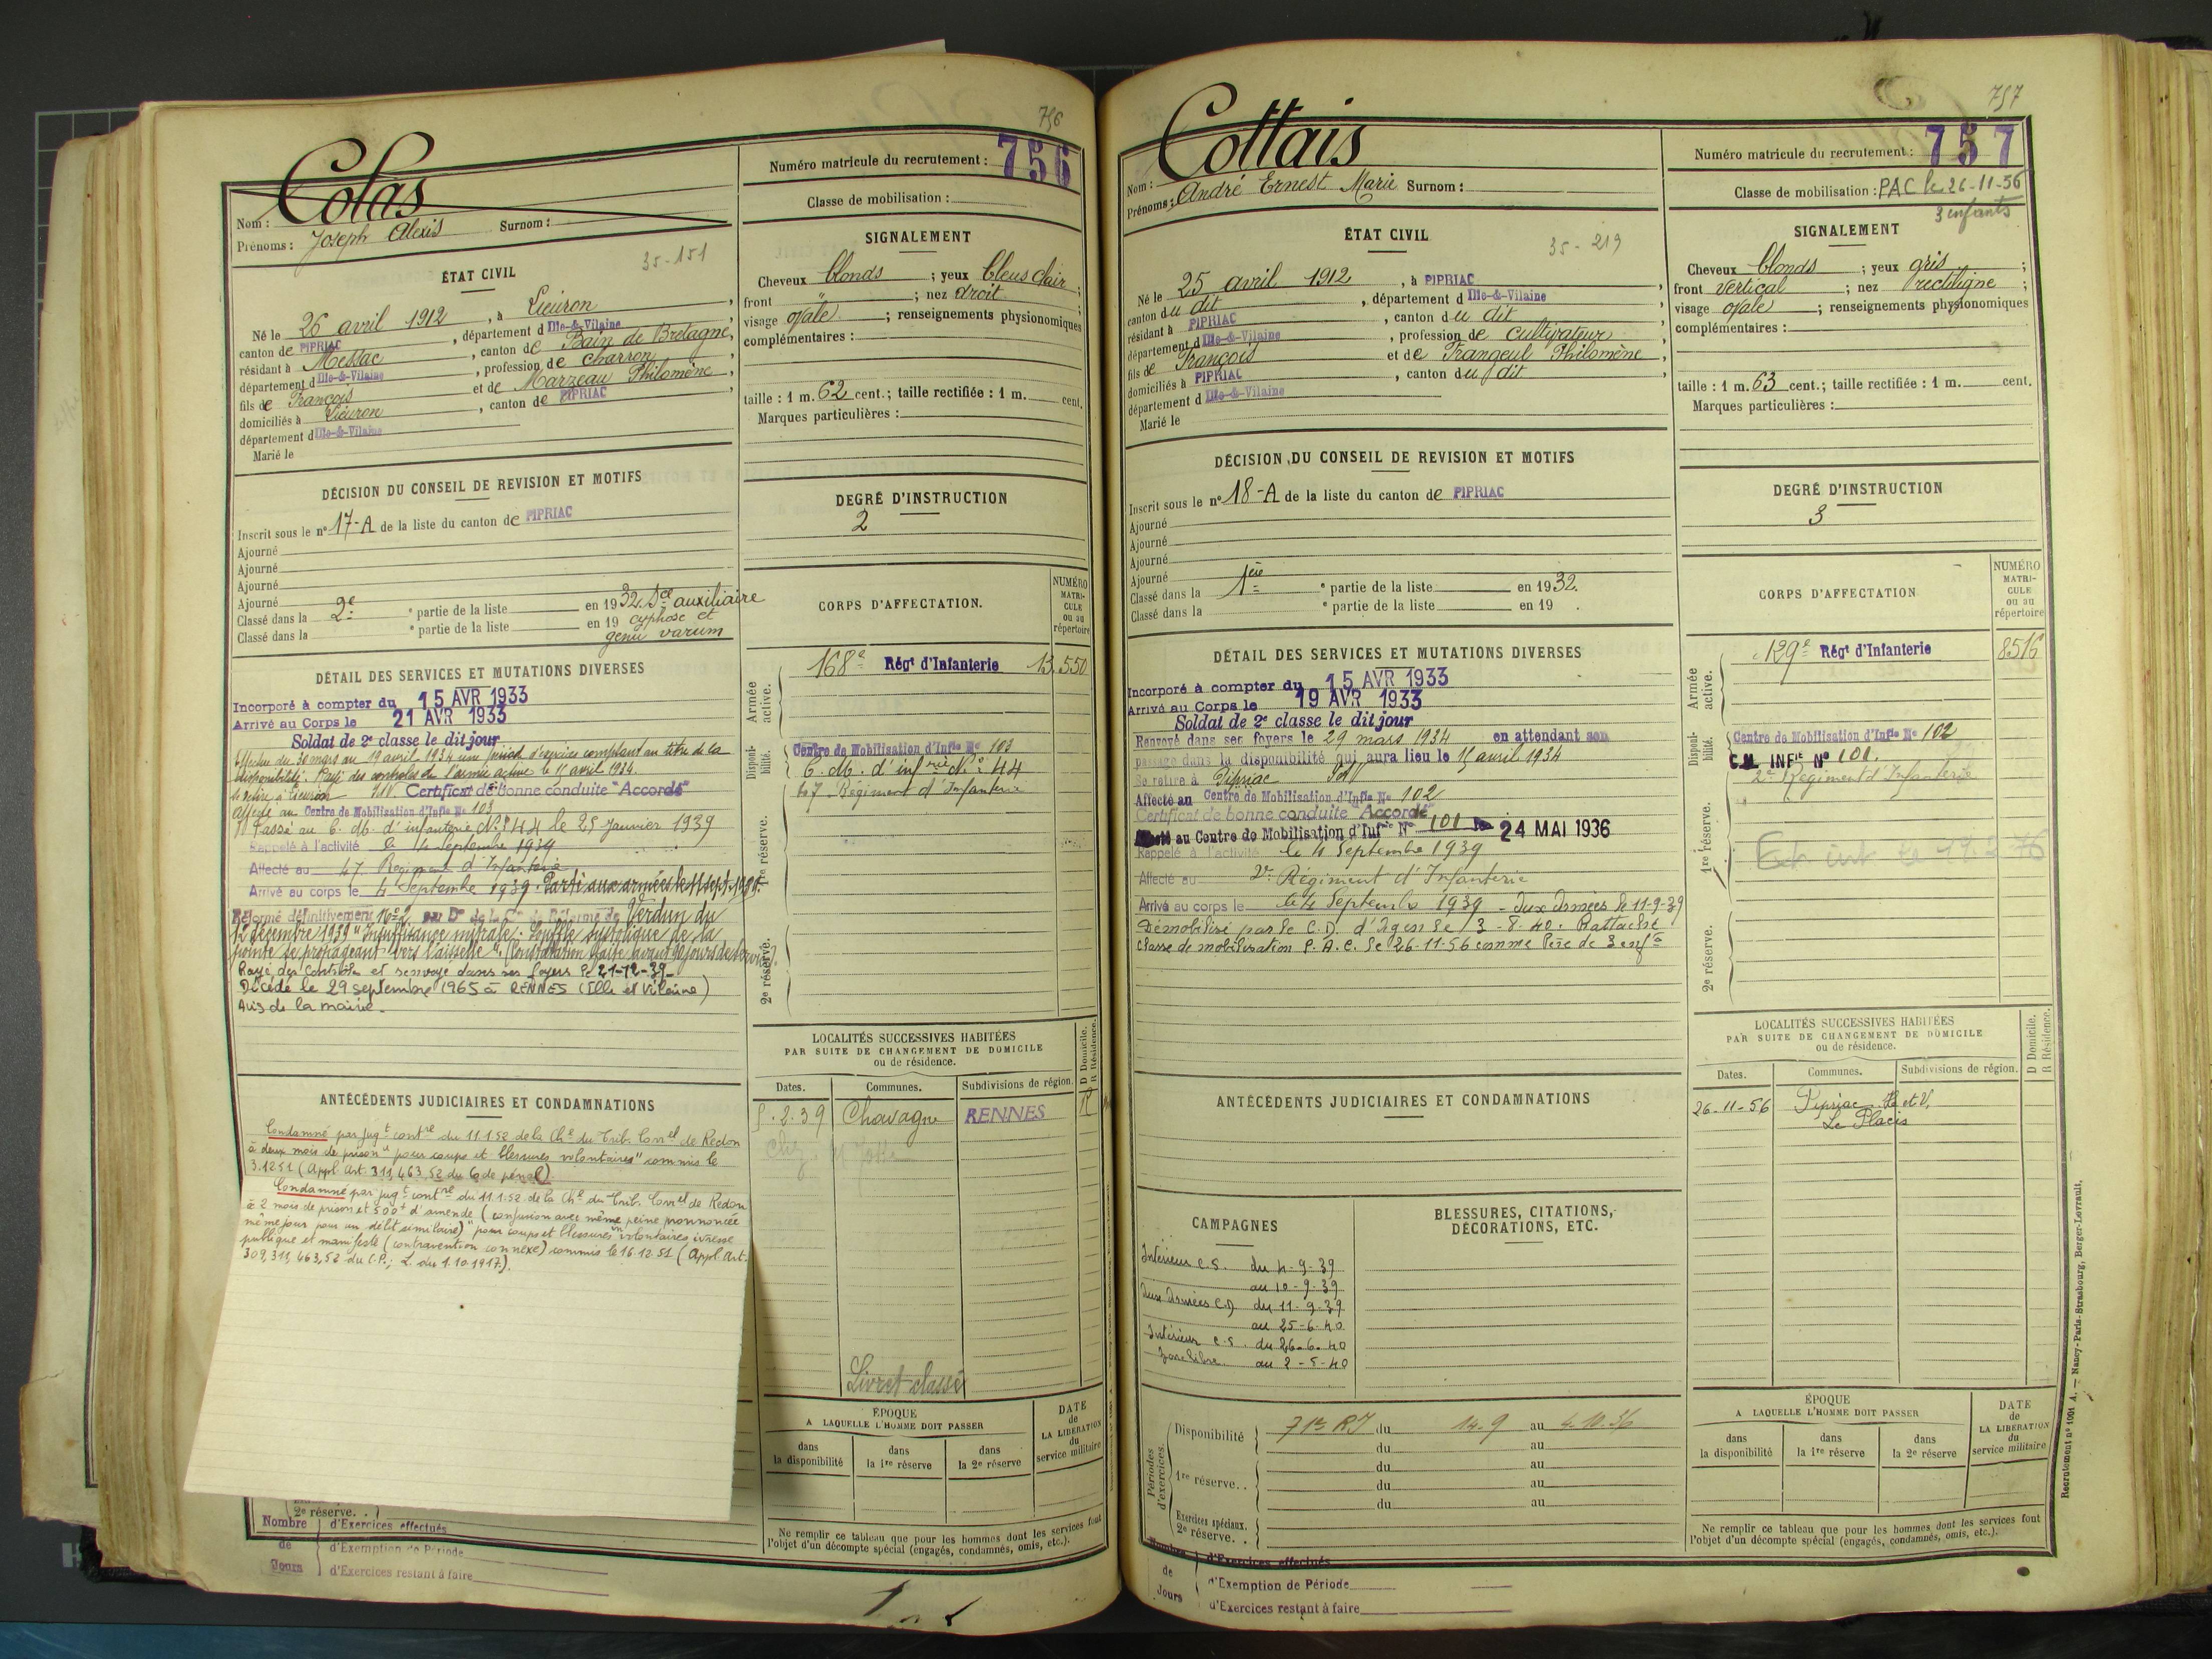 756
Colas
Nom :
Prénoms : Joseph Alexis Surnom :
Numéro matricule du recrutement : 756
Classe de mobilisation :
ÉTAT CIVIL
35-151
Né le 26 avril 1912, à Lieuron,
canton de PIPRIAC, département d Ille-&-Vilaine
résidant à Messac, canton de Bain de Bretagne,
département d Ille-&-Vilaine, profession de charron,
fils de François et de Marzeau Philomène,
domiciliés à Lieuron, canton de PIPRIAC,
département d Ille-&-Vilaine
Marié le
SIGNALEMENT
Cheveux blonds ; yeux bleus clair ;
front " ; nez droit ;
visage ovale ; renseignements physionomiques
complémentaires :
taille : 1 m. 62 cent.; taille rectifiée : 1 m. cent.
Marques particulières :
DÉCISION DU CONSEIL DE REVISION ET MOTIFS
Inscrit sous le n° 17-A de la liste du canton de PIPRIAC
Ajourné
Ajourné
Ajourné
Ajourné
Classé dans la 2e ° partie de la liste en 1932. Sce auxiliaire
Classé dans la ° partie de la liste en 19 cyphose et
genu varum
DEGRÉ D'INSTRUCTION
2
DÉTAIL DES SERVICES ET MUTATIONS DIVERSES
Incorporé à compter du 15 AVR 1933
Arrivé au Corps le 21 AVR 1933
Soldat de 2e classe le dit jour
Effectue du 30 mars au 19 avril 1934 une période d'exercice comptant au titre de la
disponibilité. Rayé des contrôles de l'armée active le 15 avril 1934.
Se retire à Lieuron I&V. Certificat de bonne conduite "Accordé"
Affecté au Centre de Mobilisation d'Infie No 103
Passé au C. M. d'infanterie No 44 le 25 Janvier 1939
Rappelé à l'activité le 4 Septembre 1939
Affecté au 47 Régiment d'Infanterie
Arrivé au corps le 4 Septembre 1939. Parti aux armées le 11 sept. 1939.
Réformé définitivement No 2 par Don de la Con de Réforme de Verdun du
12 décembre 1939 "Insuffisance mitrale : Souffle systolique de la
pointe se propageant vers l'aisselle".
Rayé des contrôles et renvoyé dans ses foyers le 21-12-39_
Décédé le 29 septembre 1965 à RENNES (Ille et Vilaine)
Avis de la mairie.
CORPS D'AFFECTATION.
NUMÉRO MATRI-CULE ou au répertoire
Armée active.
168e Régt d'Infanterie 13.550
Disponi-bilité.
Centre de Mobilisation d'Infie No 103
C. M. d'infrie No 44
47 Régiment d'Infanterie
1re réserve.
2e réserve.
LOCALITÉS SUCCESSIVES HABITÉES
PAR SUITE DE CHANGEMENT DE DOMICILE
ou de résidence.
D Domicile.
R Résidence.
Dates. Communes. Subdivisions de région.
5.2.39 Chavagne RENNES R
Livret classé
ANTÉCÉDENTS JUDICIAIRES ET CONDAMNATIONS
Condamné par jugt contre du 11.1.52 de la Che du Trib. Correl de Redon
à deux mois de prison "pour coups et blessures volontaires" commis le
3.12.51 (Appl. Art. 311, 463, 52 du Code pénal)
Condamné par jugt contre du 11.1.52 de la Che du Trib. Correl de Redon
à 2 mois de prison et 500f d'amende (confusion avec même peine prononcée
même jour pour un délit similaire) "pour coups et blessures volontaires ivresse
publique et manifeste (contravention connexe) commis le 16.12.51 (Appl. Art.
309, 311, 463, 52 du C.P.; L. du 1.10.1917).
ÉPOQUE
A LAQUELLE L'HOMME DOIT PASSER
dans la disponibilité
dans la 1re réserve
dans la 2e réserve
DATE de LA LIBÉRATION du service militaire
2e réserve. .
Nombre de Jours
d'Exercices effectués
d'Exemption de Période
d'Exercices restant à faire
Ne remplir ce tableau que pour les hommes dont les services font
l'objet d'un décompte spécial (engagés, condamnés, omis, etc.).
757
Cottais
Nom :
Prénoms : André Ernest Marie Surnom :
Numéro matricule du recrutement : 757
Classe de mobilisation : PAC le 26-11-56
3 enfants
ÉTAT CIVIL
35-219
Né le 25 avril 1912, à PIPRIAC,
canton du dit, département d Ille-&-Vilaine
résidant à PIPRIAC, canton du dit,
département d Ille-&-Vilaine, profession de cultivateur,
fils de François et de Frangeul Philomène,
domiciliés à PIPRIAC, canton du dit,
département d Ille-&-Vilaine
Marié le
SIGNALEMENT
Cheveux blonds ; yeux gris ;
front vertical ; nez rectiligne ;
visage ovale ; renseignements physionomiques
complémentaires :
taille : 1 m. 63 cent.; taille rectifiée : 1 m. cent.
Marques particulières :
DÉCISION DU CONSEIL DE REVISION ET MOTIFS
Inscrit sous le n° 18-A de la liste du canton de PIPRIAC
Ajourné
Ajourné
Ajourné
Ajourné
Classé dans la 1ère ° partie de la liste en 1932.
Classé dans la ° partie de la liste en 19 .
DEGRÉ D'INSTRUCTION
3
DÉTAIL DES SERVICES ET MUTATIONS DIVERSES
Incorporé à compter du 15 AVR 1933
Arrivé au Corps le 19 AVR 1933
Soldat de 2e classe le dit jour
Renvoyé dans ses foyers le 29 mars 1934 en attendant son
passage dans la disponibilité qui aura lieu le 15 avril 1934
Se retire à Pipriac I&V
Affecté au Centre de Mobilisation d'Infie No 102
Certificat de bonne conduite "Accordé"
Affecté au Centre de Mobilisation d'Infrie No 101 le 24 MAI 1936
Rappelé à l'activité le 4 Septembre 1939
Affecté au 2e Régiment d'Infanterie
Arrivé au corps le 4 Septembre 1939 - Aux Armées le 11-9-39
Démobilisé par le C.D. d'Agen le 3-8-40. Rattaché
classe de mobilisation P.A.C. le 26-11-56 comme Père de 3 enfts
CORPS D'AFFECTATION
NUMÉRO MATRI-CULE ou au répertoire
Armée active.
129e Régt d'Infanterie 8516
Disponi-bilité.
Centre de Mobilisation d'Infie No 102
C.M. INFie No 101.
2e Régiment d'Infanterie
1re réserve.
2e réserve.
LOCALITÉS SUCCESSIVES HABITÉES
PAR SUITE DE CHANGEMENT DE DOMICILE
ou de résidence.
D Domicile.
R Résidence.
Dates. Communes. Subdivisions de région.
26-11-56 Pipriac I et V.
Le Placis
ANTÉCÉDENTS JUDICIAIRES ET CONDAMNATIONS
CAMPAGNES
Intérieur C.S. du 4-9-39
au 10-9-39
Aux Armées C.D. du 11-9-39
au 25-6-40
Intérieur C.S. du 26-6-40
Zone libre. au 2-8-40
BLESSURES, CITATIONS,
DÉCORATIONS, ETC.
Périodes d'exercices.
Disponibilité 71e RI du 14.9 au 4.10.36
du au
1re réserve. . du au
du au
du au
Exercices spéciaux.
2e réserve. .
Nombre de Jours
d'Exercices effectués
d'Exemption de Période
d'Exercices restant à faire
ÉPOQUE
A LAQUELLE L'HOMME DOIT PASSER
dans la disponibilité
dans la 1re réserve
dans la 2e réserve
DATE de LA LIBÉRATION du service militaire
Ne remplir ce tableau que pour les hommes dont les services font
l'objet d'un décompte spécial (engagés, condamnés, omis, etc.).
Recrutement n° 1001 A. — Nancy-Paris-Strasbourg, Berger-Levrault.